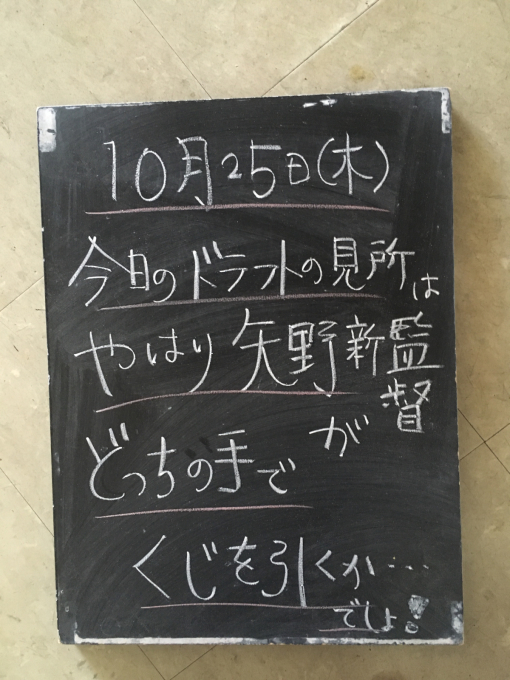 10月25日(木)
今日のドラフトの見所は
やはり矢野新監督が
どっちの手で
くじを引くか…
でしょ!